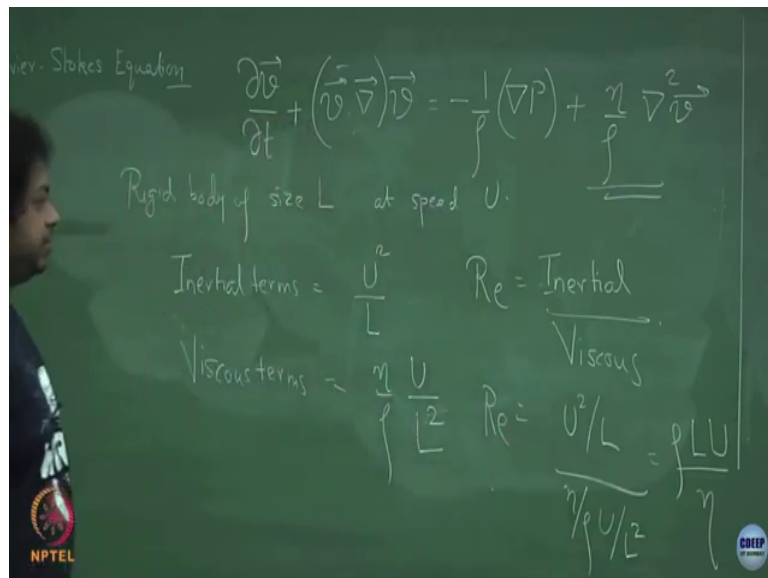 vier-Stokes Equation ∂v⃗/∂t + (v⃗·∇⃗)v⃗ = -1/ρ (∇P) + η/ρ ∇²v⃗
Rigid body of size L at speed U.
Inertial terms = U²/L Re = Inertial/Viscous
Viscous terms = η/ρ U/L² Re = U²/L / η/ρ U/L² = ρLU/η
NPTEL
CDEEP
IIT BOMBAY